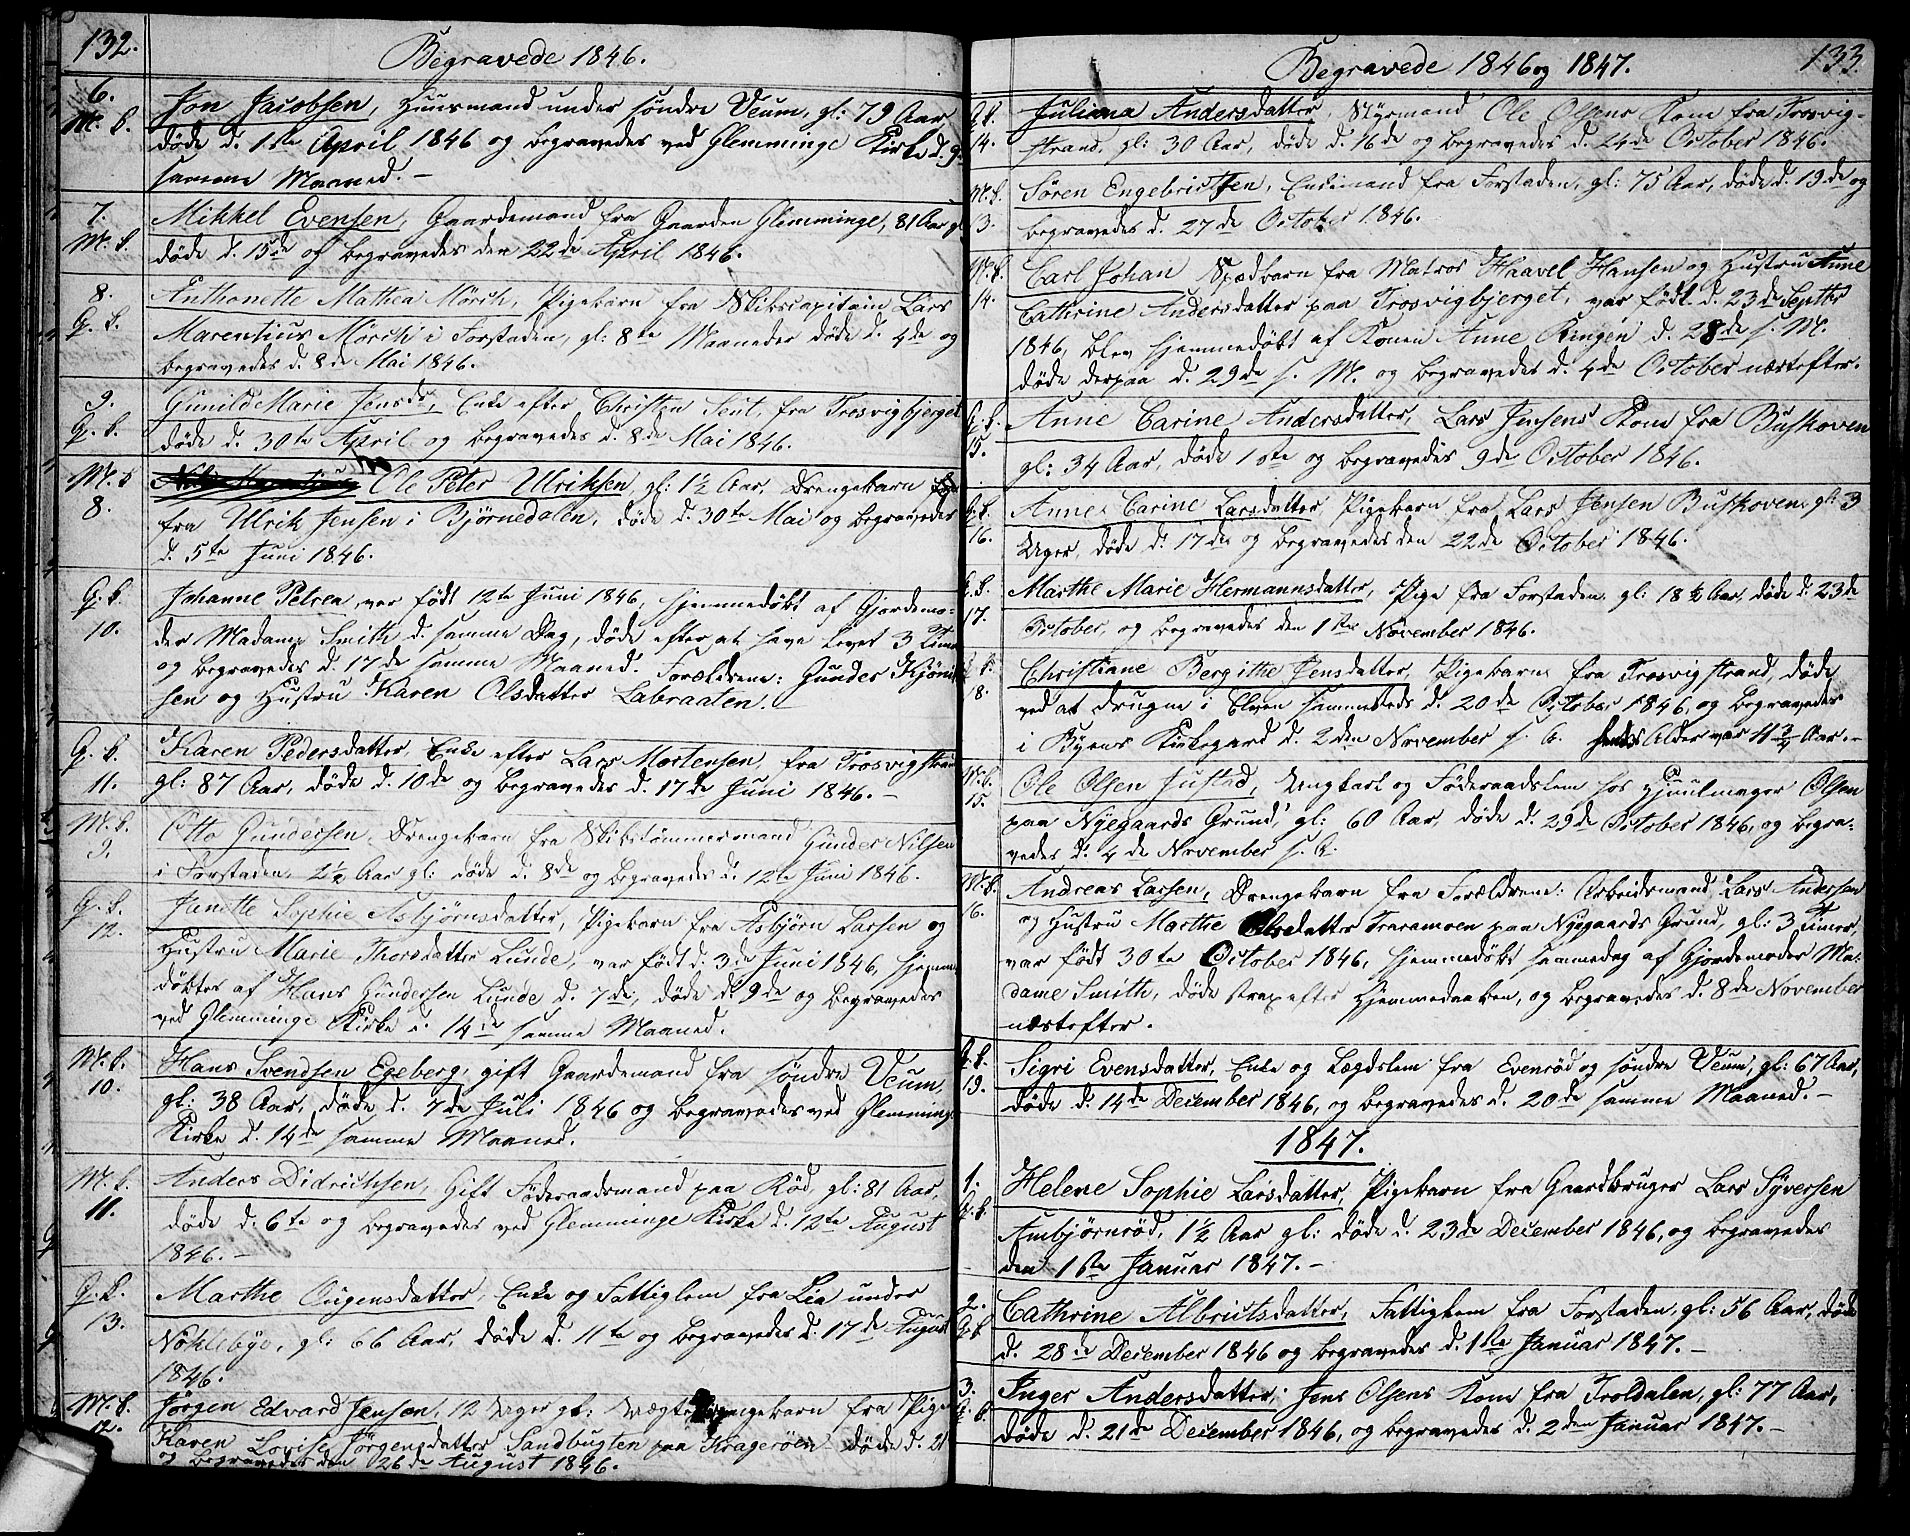 132.
Begravede 1846.
6.
M. k.
Jon Jacobsen, Huusmand under søndre Veum, gl: 79 Aar
døde d. 1ste April 1846 og begravedes ved Glemminge Kirke d. 9
samme Maaned.-
7.
M. k.
Mikkel Evensen, Gaardemand fra Gaarden Glemminge, 81 Aar gl
døde d. 15de og begravedes den 22de April 1846.
8.
Q. k.
Anthonette Mathea Mörch, Pigebarn fra Skibscapitain Lars
Marentius Mörch i Forstaden, gl: 8te Maaneder døde d. 4de og
begravedes d. 8de Mai 1846.
9.
Q. k.
Gunild Marie Jensdr, Enke efter Christen Seut, fra Trosvigbjerget
døde d. 30te April og begravedes d. 8de Mai 1846.
M. k
8.
Ole Peter Ulriksen gl: 1½ Aar, Drengebarn
fra Ulrik Jensen i Bjørnedalen, døde d. 30te Mai og begravedes
d. 5te Juni 1846.
Q. k.
10.
Johanne Petrea, var født 12te Juni 1846, hjemmedøbt af Gjordemo-
der Madame Smith d. samme Dag, døde efter at have levet 3 Timer
og begravedes d. 17de samme Maaned. Forældrene: Gunder
sen og Hustru Karen Olsdatter Labraaten.-
Q. k.
11.
Karen Pedersdatter, Enke efter Lars Mortensen, fra Trosvigstrand
gl: 87 Aar, døde d. 10de og begravedes d. 17de Juni 1846.-
M. k.
9.
Otto Gundersen, Drengebarn fra Skibstømmermand Gunder Nilsen
i Forstaden, 2½ Aar gl: døde d. 8de og begravedes d. 12te Juni 1846.
Q. k.
12.
Janette Sophie Asbjørnsdatter, Pigebarn fra Asbjørn Larsen og
Hustru Marie Thorsdatter Lunde, var født d. 3de Juni 1846, hjemme
døbtes af Hans Gundersen Lunde d. 7de, døde d. 9de og begravedes
ved Glemminge Kirke d. 14de samme Maaned.
M. k.
10.
Hans Svendsen Egeberg, gift Gaardemand fra søndre Veum,
gl: 38 Aar, døde d. 7de Juli 1846 og begravedes ved Glemminge
Kirke d. 14de samme Maaned.
M. k.
11.
Anders Didrichsen, Gift Føderaadsmand paa Rød, gl: 81 Aar,
døde d. 6te og begravedes ved Glemminge Kirke d. 12te August
1846.-
Q. k.
13.
Marthe Augensdatter, Enke og Fattiglem fra Lia under
Nøklebye, gl: 66 Aar, døde d. 11te og begravedes d. 17de August
1846.
M. k.
12.
Jörgen Edvard Jensen, 12 Uger gl: Uægte Drengebarn fra Pige
Karen Lovise Jørgensdatter Sandbugten paa Kragerøen døde d. 21
og begravedes den 26de August 1846.
133.
Begravede 1846 og 1847.
Q. k.
14.
Juliana Andersdatter, Styrmand Ole Olsens Kone fra Trosvig-
strand, gl: 30 Aar, døde d. 16de og begravedes d. 24de October 1846.
M. k.
13.
Søren Engebrictsen, Enkemand fra Forstaden, gl: 75 Aar, døde d. 19de og
begravedes d. 27de October 1846.
M. k.
14.
Carl Johan Spædbarn fra Matros Haavel Hansen og Hustru Anne
Cathrine Andersdatter paa Trosvigbjerget, var født d. 23de Septbr
1846, blev hjemmedøbt af Konen Anne Ringen d. 28de s. M.
døde derpaa d. 29de s. M. og begravedes d. 4de October næstefter.
Q. k.
15.
Anne Carine Andersdatter, Lars Jensens Kone fra Buskoven
gl: 34 Aar, døde 1ste og begravedes 9de October 1846.
Q. k.
16.
Anne Carine Larsdatter Pigebarn fra Lars Jensen Buskoven, gl: 3
Uger, døde d. 17de og begravedes den 22de October 1846.
Q. k.
17.
Marthe Marie Hermannsdatter, Pige fra Forstaden, gl: 18½ Aar, døde d. 23de
October, og begravedes den 1ste November 1846.
Q. k.
18.
Christiane Bergithe Jensdatter, Pigebarn fra Trosvigstrand, døde
ved at drugne i Elven sammesteds d. 20de October 1846, og begravedes
i Byens Kirkegaard d. 2den November s. A. hendes Alder var 4¾ Aar.-
M. k.
15.
Ole Olsen Justad, Ungkarl og Føderaadslem hos Hjuulmager Olsen
paa Nyegaards Grund, gl: 60 Aar, døde d. 29de October 1846, og begra-
vedes d. 4de November s. A.
M. k.
16.
Andreas Larsen, Drengebarn fra Forældrene: Arbeidsmand Lars Andersen
og Hustru Marthe Olsdatter Traramoen paa Nyegaards Grund, gl: 3 Timer,
var født 30te October 1846, hjemmedøbt sammedag af Gjordemoder Ma-
dame Smith, døde strax efter Hjemmedaaben, og begravedes d. 8de November
næstefter.
Q. k.
19.
Sigri Evensdatter, Enke og Lægdslem fra Evenrød og søndre Veum, gl: 67 Aar,
døde d. 14de December 1846, og begravedes d. 20de samme Maaned.-
1847.
1.
Q. k.
Helene Sophie Larsdatter, Pigebarn fra Gaardbruger Lars Syversen
Ambjørnrød, 1½ Aar gl: døde d. 23de December 1846, og begravedes
den 1ste Januar 1847.-
2.
Q. k.
Cathrine Albrictsdatter, Fattiglem fra Forstaden, gl: 56 Aar, døde
d. 28de December 1846 og begravedes d. 1ste Januar 1847.-
3.
Q. k.
Inger Andersdatter, Jens Olsens Kone fra Troldalen, gl: 77 Aar,
døde d. 21de December 1846, og begravedes d. 2den Januar 1847.-